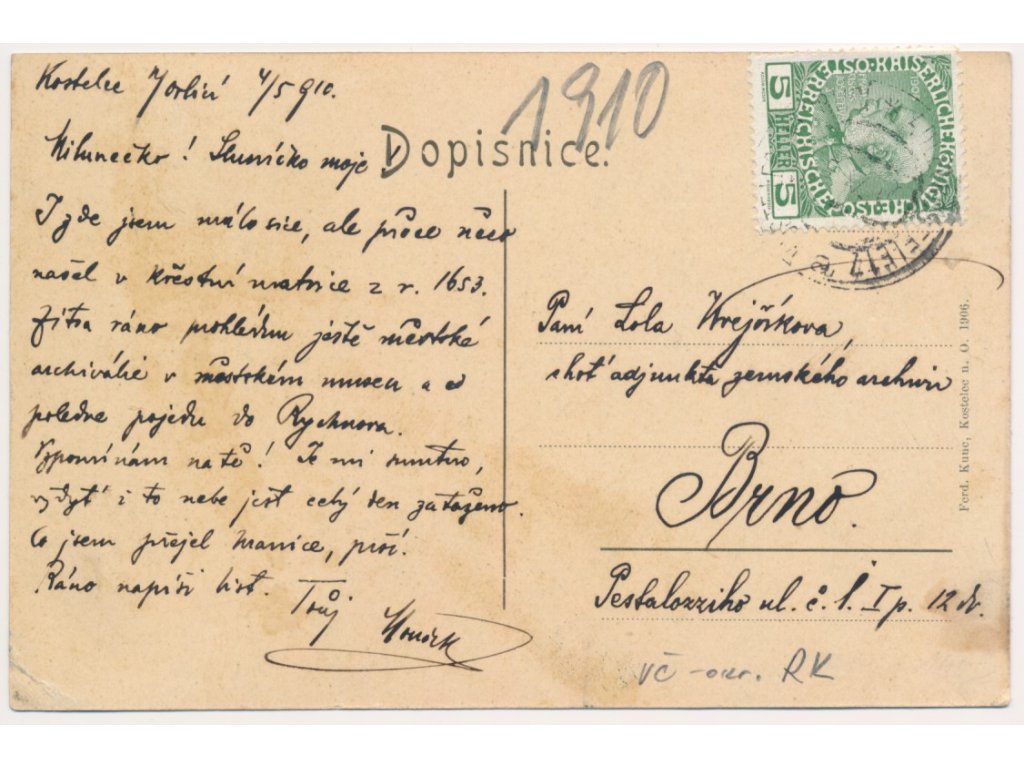 Kostelec n/Orlicí 4/5 910.
1910
Milunečko! Sluníčko moje
Dopisnice.
I zde jsem málo sice, ale přece něco
našel v křestní matrice z r. 1653.
Zítra ráno prohlédnu ještě městské
archiválie v městském museu a od
poledne pojedu do Rychnova.
Vzpomínám na tě! Je mi smutno,
vždyť i to nebe jest celý den zataženo.
Co jsem přejel hranice, prší.
Ráno napíši list.
Tvůj
5 HELLER 5
Paní Lola
choť adjunkta zemského archivu
Brno.
Pestalozziho ul. č. 1. I p. 12 dv.
Ferd. Kunc, Kostelec n. O. 1906.
VČ - okr. RK